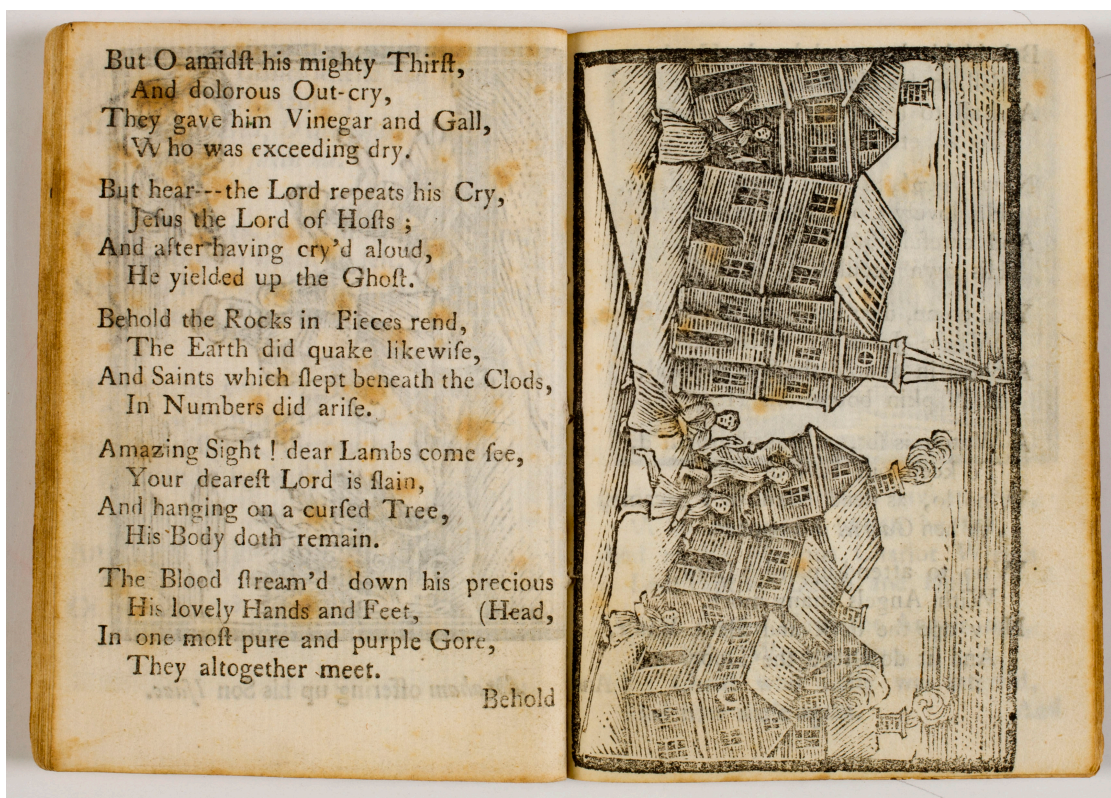 But O amidſt his mighty Thirſt,
And dolorous Out-cry,
They gave him Vinegar and Gall,
Who was exceeding dry.
But hear---the Lord repeats his Cry,
Jeſus the Lord of Hoſts ;
And after having cry'd aloud,
He yielded up the Ghoſt.
Behold the Rocks in Pieces rend,
The Earth did quake likewiſe,
And Saints which ſlept beneath the Clods,
In Numbers did ariſe.
Amazing Sight ! dear Lambs come ſee,
Your deareſt Lord is ſlain,
And hanging on a curſed Tree,
His Body doth remain.
The Blood ſtream'd down his precious
His lovely Hands and Feet, (Head,
In one moſt pure and purple Gore,
They altogether meet.
Behold